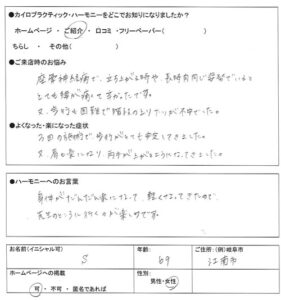 ●カイロプラクティック・ハーモニーをどこでお知りになりましたか？
ホームページ ・ ご紹介 ・ 口コミ ・フリーペーパー(　　　)
ちらし ・ その他(　　　)
●ご来店時のお悩み
坐骨神経痛で、立ち上がる時や、長時間同じ姿勢でいると
とても腰が痛くて辛かったです。
又、歩行も困難で階段の上り下りが不安でした。
●よくなった・楽になった症状
方回の施術で歩行がとても安定してきました。
又、肩も楽になり両手が上がるようになってきました。
●ハーモニーへのお言葉
身体がだんだん楽になって、軽くなってきたので、
先生のところに行くのが楽しみです。
お名前(イニシャル可)
年齢:
ご住所:(例)岐阜市
S
69
江南市
ホームページへの掲載
性別:
可 ・ 不可 ・ 匿名であれば
男性・女性